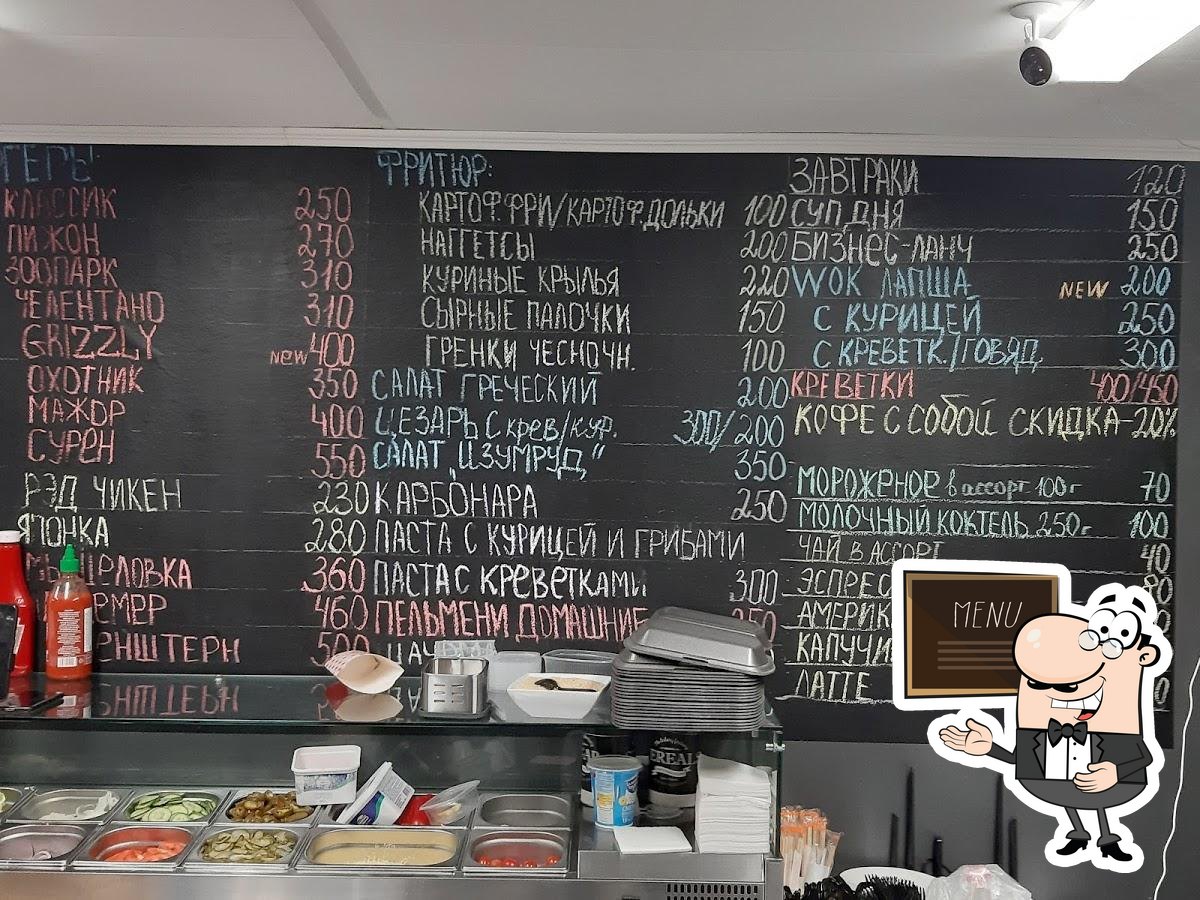 КЛАССИК 250
ПИЖОН 270
ЗООПАРК 310
ЧЕЛЕНТАНО 310
GRIZZLY new 400
ОХОТНИК 350
МАЖОР 400
СУРЕН 550
РЭД ЧИКЕН 230
ЯПОНКА 280
360
460
ФРИТЮР:
КАРТОФ.ФРИ/КАРТОФ.ДОЛЬКИ 100
НАГГЕТСЫ 200
КУРИНЫЕ КРЫЛЬЯ 220
СЫРНЫЕ ПАЛОЧКИ 150
ГРЕНКИ ЧЕСНОЧН. 100
САЛАТ ГРЕЧЕСКИЙ 200
ЦЕЗАРЬ С крев/кур. 300/200
САЛАТ „ИЗУМРУД" 350
КАРБОНАРА 250
ПАСТА С КУРИЦЕЙ И ГРИБАМИ
ПАСТА С КРЕВЕТКАМИ 300
ПЕЛЬМЕНИ ДОМАШНИЕ
ЗАВТРАКИ 120
СУП ДНЯ 150
БИЗНЕС-ЛАНЧ 250
WOK ЛАПША NEW 200
С КУРИЦЕЙ 250
С КРЕВЕТК./ГОВЯД. 300
КРЕВЕТКИ 400/450
КОФЕ С СОБОЙ СКИДКА-20%
МОРОЖЕНОЕ в ассорт 100г 70
МОЛОЧНЫЙ КОКТЕЛЬ 250г 100
ЧАЙ В АССОРТ 40
ЭСПРЕС
АМЕРИК
КАПУЧИ
ЛАТТЕ
MENU